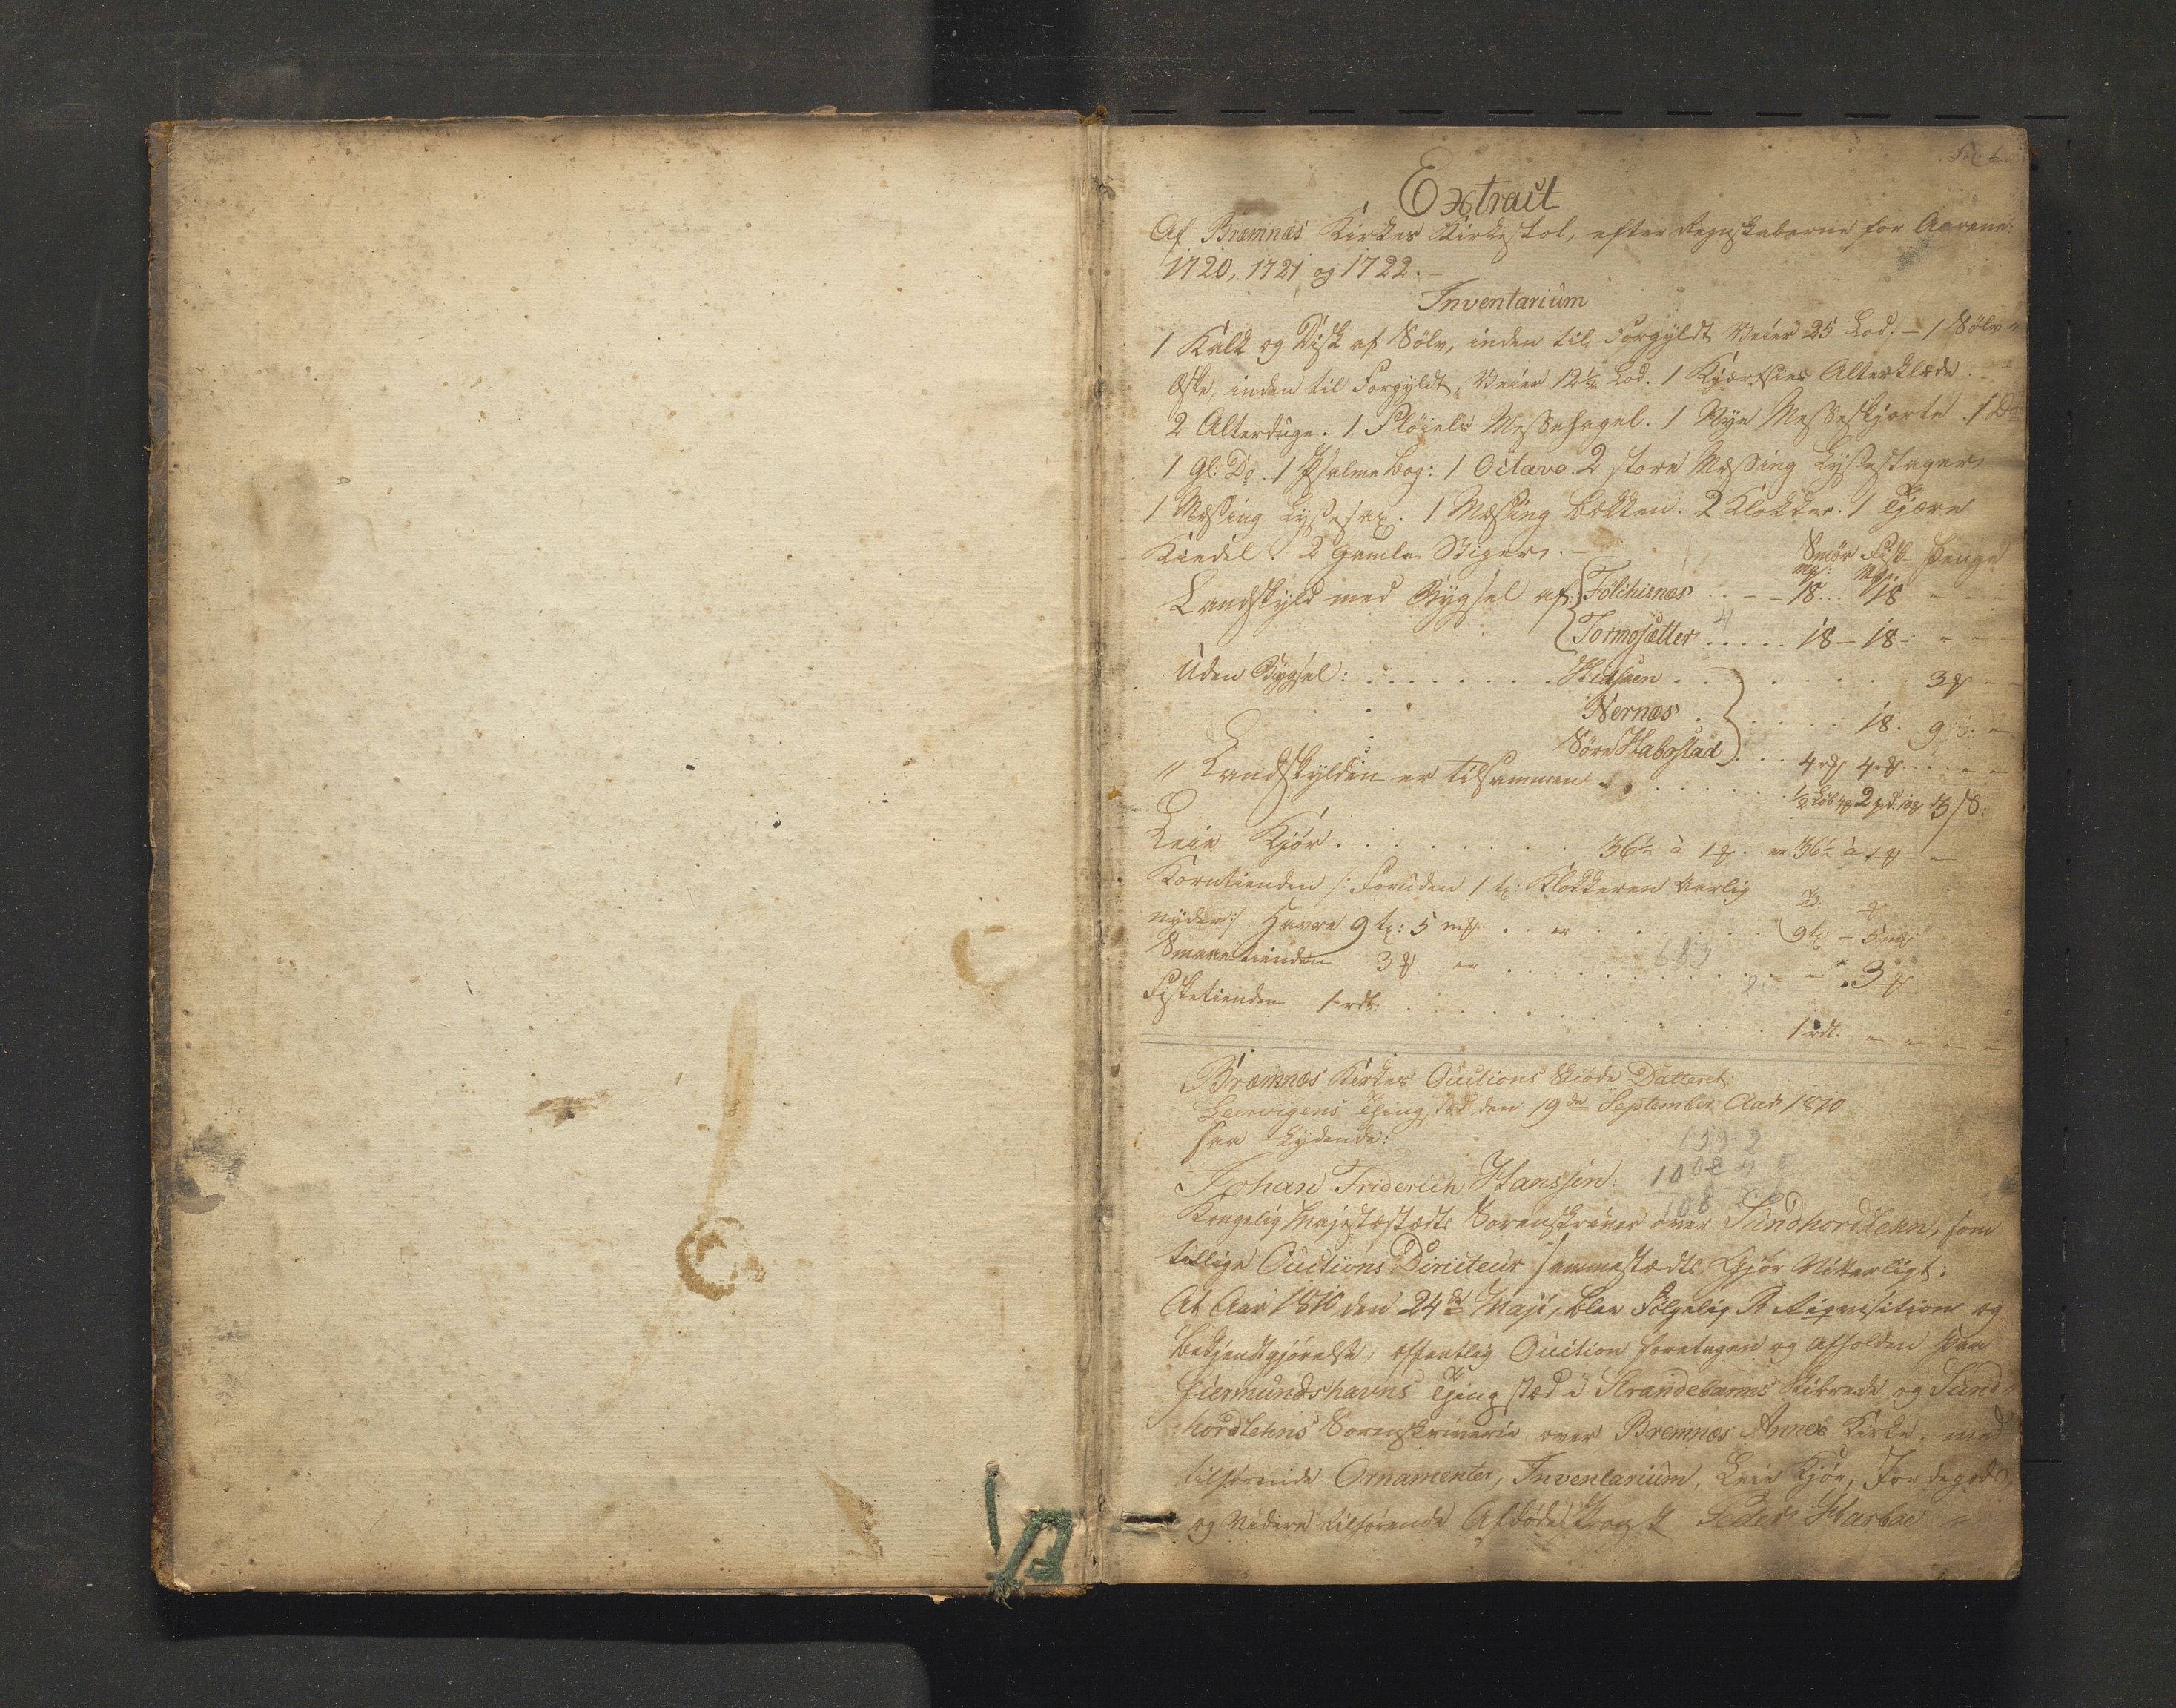 Extract
Af Bræmnæs Kirkes Kirkestol, efter Regnskaberne for Aarene:
1720, 1721 og 1722. –
Inventarium
1 Kalk og Disk af Sölv, inden til Forgyldt Veier 25 Lod. – 1 Sölv
Æske, inden til Forgyldt, Veier 12½ Lod. 1 Alterklæde.
2 Alterduge. 1 Flöiels Messehagel. 1 Nye Messeskjorte. 1 Do
1 Gl: Do. 1 Psalmebog: 1 Octavo. 2 store Messing Lysestager
1 Messing Lysesax. 1 Messing bekken. 2 Klokker. 1 Tjære
Kiedel. 2 gamle Stiger. –
Smör Fisk Penge
Landskyld med Bygsel af Fölchisnæs . . – – 18 . . 18 –
Tormosætter . . . . . 18 – 18 –
Uden Bygsel: . . . . . . . Hidsøen . . . . . . . . 3
Nernæs . . . . . 18. 9
Söre Habostad . . . 4 4
Landskylden er tilsammen . . . . .
Leie Kjör . . . . . . . . 36½ à 1 er 36½ à 1
Korntienden /: Foruden 1 t: Klokkeren aarlig
nyder :/ Havre 9 t: 5 . . er . . . . . 9 t: – 5
Smaae tienden 3 er . . . . . . . . . 3
Fisketienden 1 rdl: . . . . . . . . . 1 rdl. – – – –
Bræmnæs Kirkes Auctions Skiöde Datteret:
Leervigens Tingsted den 19de September Aar 1810
saa Lydende:
Johan Friderich Hanssen:
Kongelig Majestæts Sorenskriver over Sundhordlehn, som
tillige Auctions Directeur sammestæds Gjör Vitterligt:
At Aar 1810 den 24de Maji, blev Fölgelig Reqvisition og
Bekjendtgjörelse, offentlig Auction foretagen og afholden paa
Giermundshavns Tingsted i Strandebarms Skibrede og Sund-
hordlehns Sorenskriverie over Bremnæs Annex Kirke, med
tilhörende Ornamenter, Inventarium, Leie Kjör, Jordegods,
og Videre tilhörende Afdöde Peder Harboe